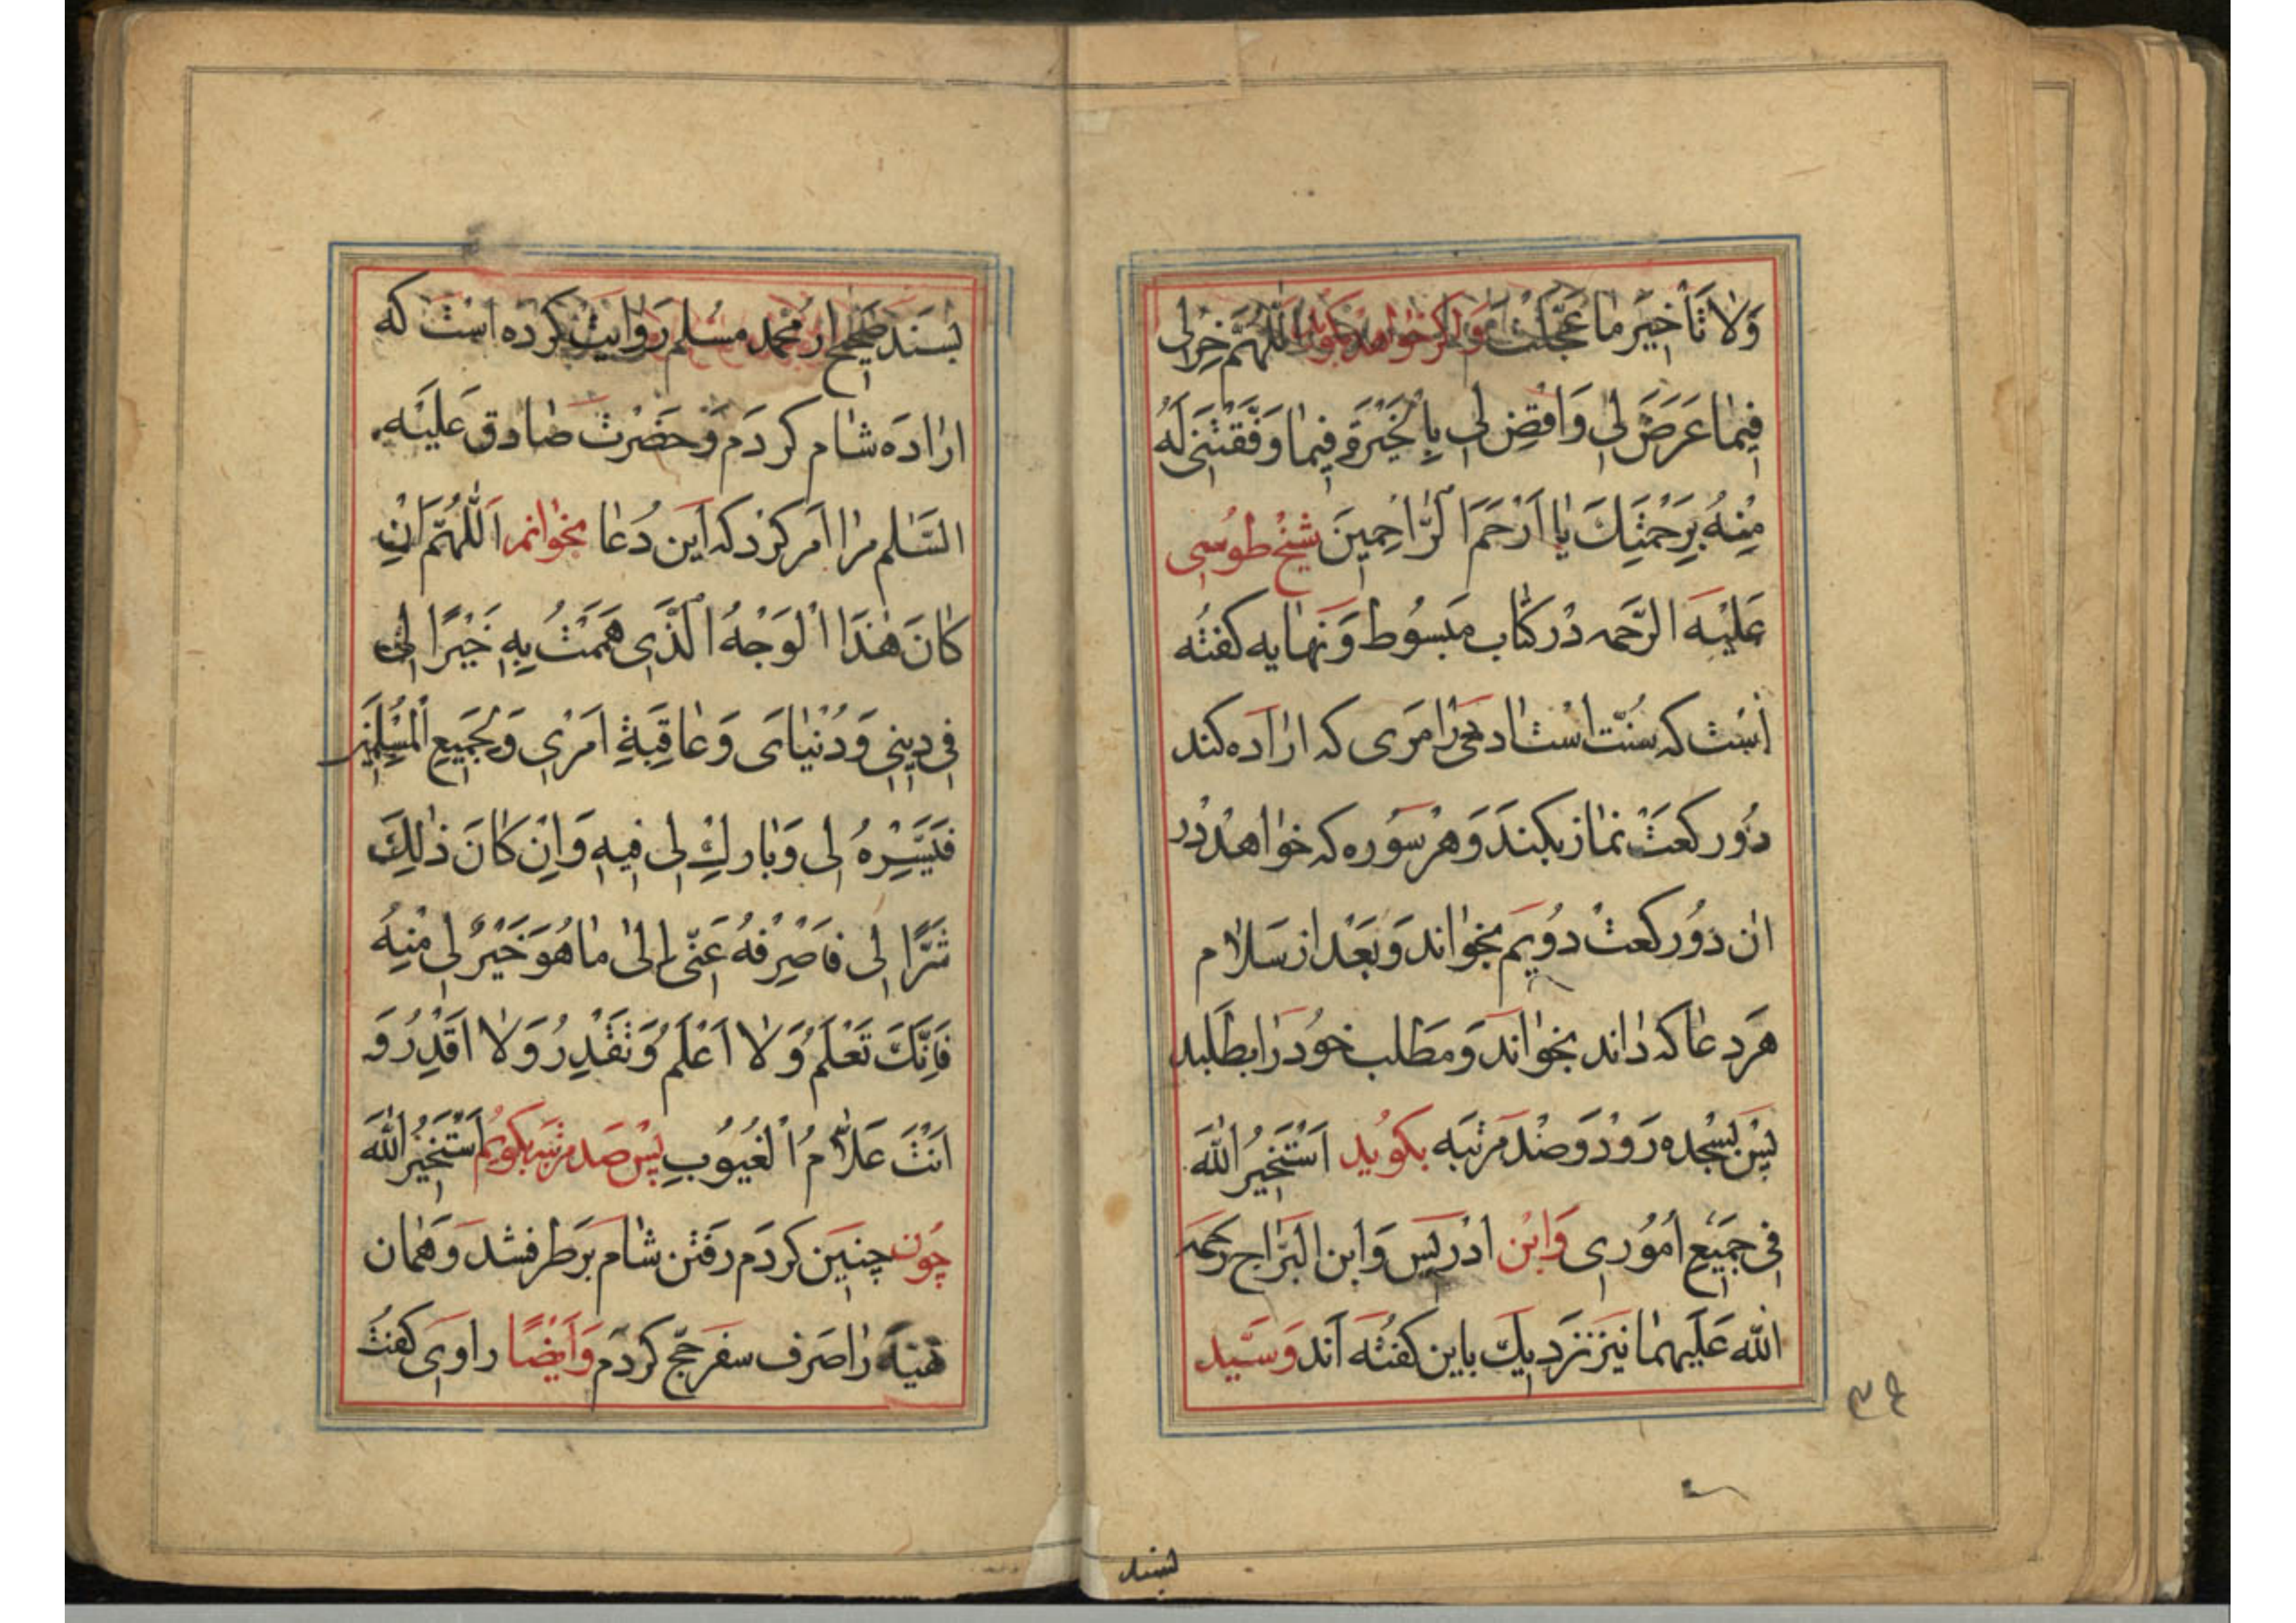 وَلَا تَأْخِیرَ مَا عَجَّلْتَ وَاکر خواهد بکوید اَللّٰهُمَّ خِرْلِی
فِیمَا عَرَضَ لِی وَاقْضِ لِی بِالْخِیَرَةِ فِیمَا وَفَّقْتَنِی لَهُ
مِنْهُ بِرَحْمَتِکَ یَا اَرْحَمَ الرَّاحِمِینَ شیخ طوُسی
عَلَیْهِ الرَّحمه دَر کتاب مَبسُوط وَ نهایه کفته
است که سُنّت است اَمری که اراده کند
دُو رکعَت نماز بکند وَ هر سُوره که خواهد در
ان دُو رکعت دُویم بخواند وَ بَعْد از سَلام
هَر دعا که داند بخواند وَ مَطلب خوُد را بطلبد
پس بسجده رَوَد وَ صَد مرتبه بکوید اَسْتَخِیرُ اللّٰهَ
فِی جَمِیعِ اُمُوُرِی وَابْن ادریس وَابن البَرّاج رَحمَه
اللّٰه عَلَیهما نیز نزدیك باین کفته اَند وَسَیّد
بسند
بسَند صَحیح از محمد مسُلم رَوایت کرده است که
اراده شام کردَم وَ حَضرت صادق عَلَیْه
السَّلم مرا امر کرد که این دُعا بخوانم اَللّٰهُمَّ اِنْ
کَانَ هٰذَا الْوَجْهُ الَّذِی هَمَمْتُ بِهِ خَیْرًا لِی
فِی دِینِی وَدُنْیَایَ وَعَاقِبَةِ اَمْرِی وَلِجَمِیعِ الْمُسْلِمِینَ
فَیَسِّرْهُ لِی وَبَارِكْ لِی فِیهِ وَاِنْ کَانَ ذٰلِكَ
شَرًّا لِی فَاصْرِفْهُ عَنِّی اِلیٰ مَا هُوَ خَیْرٌ لِی مِنْهُ
فَاِنَّكَ تَعْلَمُ وَلَا اَعْلَمُ وَتَقْدِرُ وَلَا اَقْدِرُ وَ
اَنْتَ عَلَّامُ الْغُیُوبِ پس صَد مرتبه بکویم اَسْتَخِیرُ اللّٰهَ
چوُن چنین کردَم رفتن شام بَرطرف شد وَ همان
را صَرف سفر حج کردم وَ اَیْضًا راوی کفت